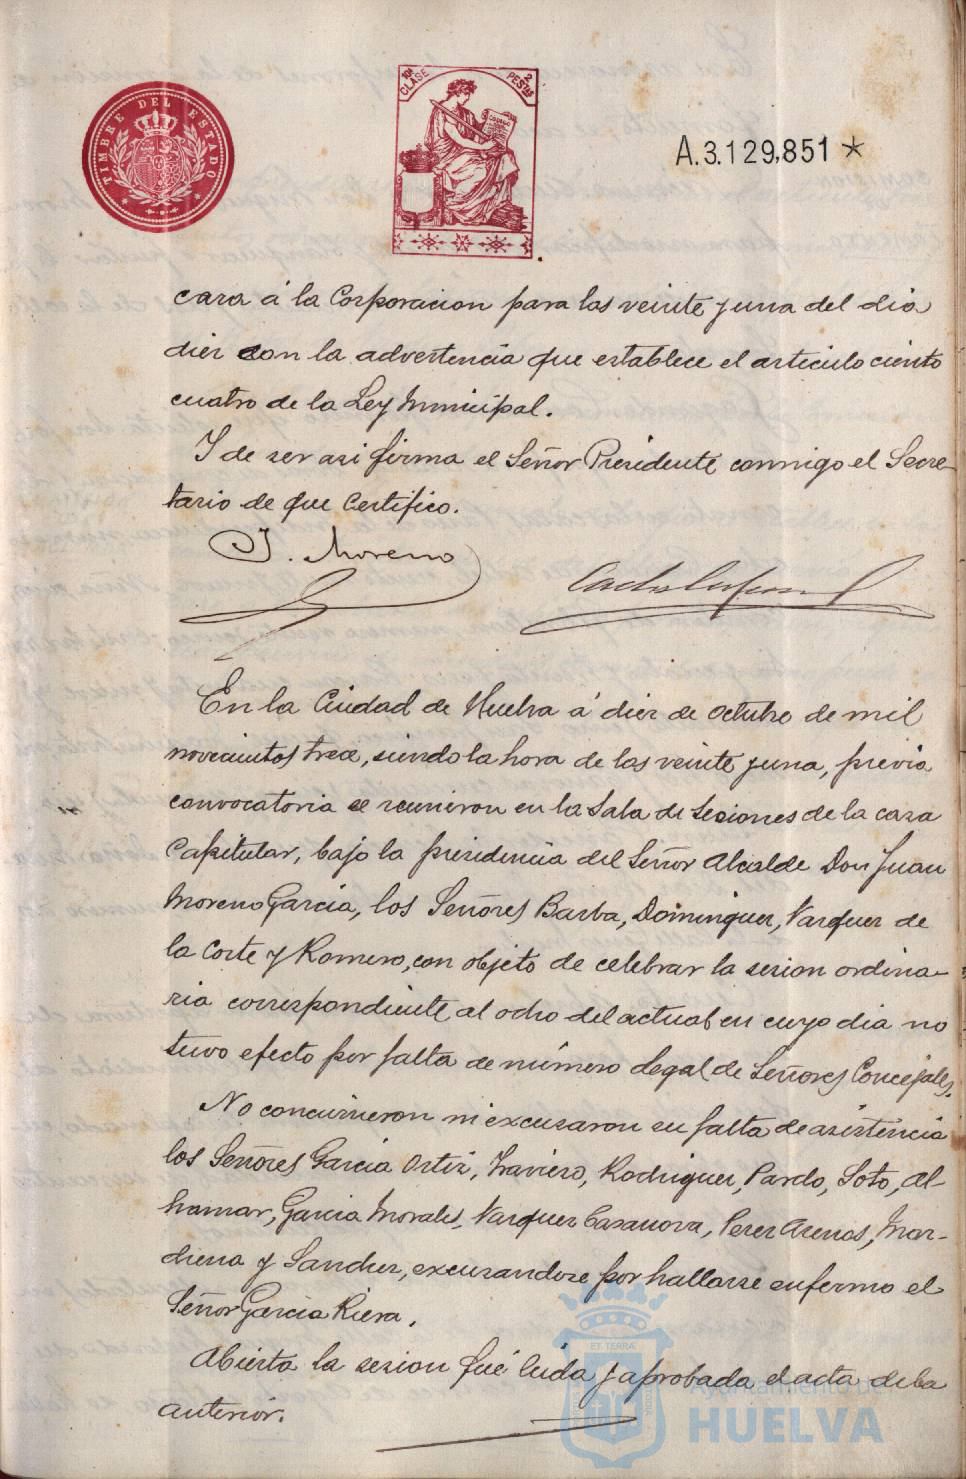 TIMBRE DEL ESTADO
10ª CLASE
2 PESTAS
A.3.129,851 *
cara á la Corporacion para las veinte y una del dia
diez con la advertencia que establece el articulo ciento
cuatro de la Ley Municipal.
Y de ser asi firma el Señor Presidente conmigo el Secre-
tario de que Certifico.
J. Moreno
En la Ciudad de Huelva á diez de Octubre de mil
novecientos trece, siendo la hora de las veinte y una, previa
convocatoria se reunieron en la Sala de Sesiones de la casa
Capitular, bajo la presidencia del Señor Alcalde Don Juan
Moreno Garcia, los Señores Barba, Dominguez, Vazquez de
la Corte y Romero, con objeto de celebrar la sesion ordina-
ria correspondiente al ocho del actual en cuyo dia no
tuvo efecto por falta de número legal de Señores Concejales.
No concurrieron ni excusaron su falta de asistencia
los Señores Garcia Ortiz, Traviero, Rodriguez, Pardo, Soto, Al-
hamar, Garcia Morales, Vazquez Casanova, Perez Arenas, Mar-
chena y Sanchez, excusandose por hallarse enfermo el
Señor Garcia Riera.
Abierta la sesion fué leida y aprobada el acta de la
anterior.
Ayuntamiento de
HUELVA